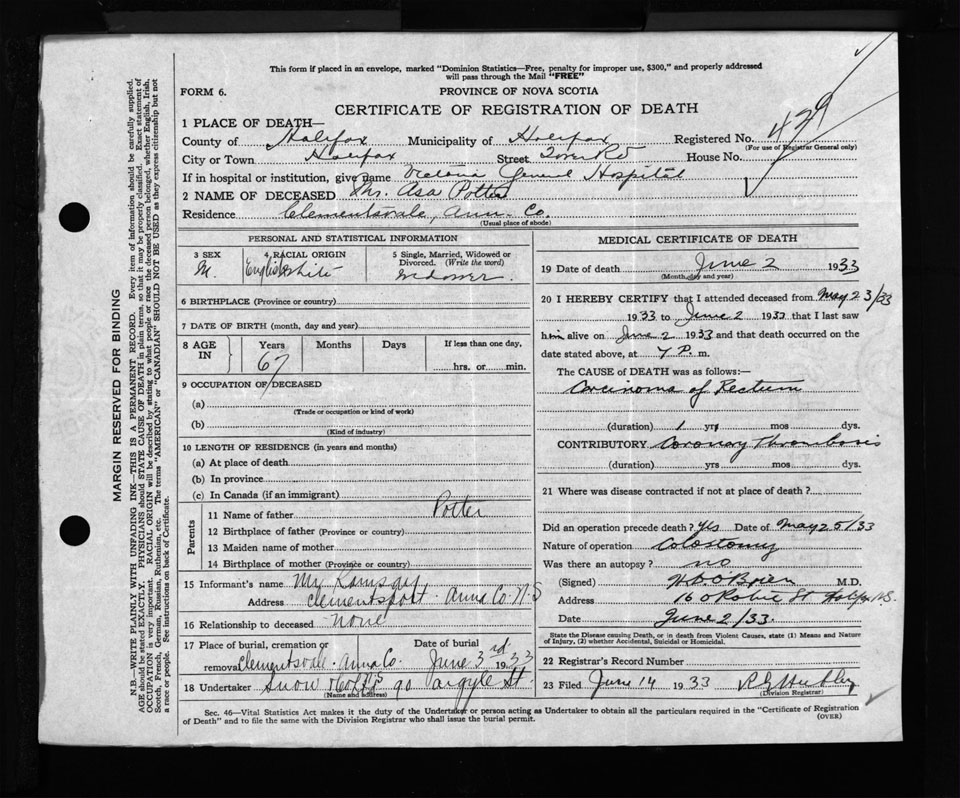 This form if placed in an envelope, marked "Dominion Statistics—Free, penalty for improper use, $300," and properly addressed
will pass through the Mail "FREE"
FORM 6.
PROVINCE OF NOVA SCOTIA
CERTIFICATE OF REGISTRATION OF DEATH
1 PLACE OF DEATH—
County of Halifax Municipality of Halifax Registered No. 429
(For use of Registrar General only)
City or Town Halifax Street House No.
If in hospital or institution, give name Victoria General Hospital
2 NAME OF DECEASED Asa Potter
Residence Clementsvale, Ann. Co.
(Usual place of abode)
PERSONAL AND STATISTICAL INFORMATION
3 SEX 4 RACIAL ORIGIN 5 Single, Married, Widowed or Divorced. (Write the word)
M. English White Widower
6 BIRTHPLACE (Province or country)
7 DATE OF BIRTH (month, day and year)
8 AGE IN Years Months Days If less than one day,
67 hrs. or min.
9 OCCUPATION OF DECEASED
(a)
(Trade or occupation or kind of work)
(b)
(Kind of industry)
10 LENGTH OF RESIDENCE (in years and months)
(a) At place of death
(b) In province
(c) In Canada (if an immigrant)
Parents
11 Name of father Potter
12 Birthplace of father (Province or country)
13 Maiden name of mother
14 Birthplace of mother (Province or country)
15 Informant's name Mr Ramsay
Address Clementsport. Anna Co. N.S
16 Relationship to deceased none
17 Place of burial, cremation or Date of burial
removal Clementsvale. Anna Co. June 3rd 1933
18 Undertaker Snow 90 Argyle St.
(Name and address)
MEDICAL CERTIFICATE OF DEATH
19 Date of death June 2 1933
(Month, day and year)
20 I HEREBY CERTIFY that I attended deceased from May 23/33
1933 to June 2 1933 that I last saw
him alive on June 2 1933 and that death occurred on
date stated above, at 7 P. m.
The CAUSE of DEATH was as follows:—
Carcinoma of Rectum
(duration) 1 yrs mos dys.
CONTRIBUTORY Coronary Thrombosis
(duration) yrs mos dys.
21 Where was disease contracted if not at place of death?
Did an operation precede death? Yes Date of May 25/33
Nature of operation Colostomy
Was there an autopsy? no
(Signed) O'Brien M.D.
Address 160 Robie St Halifax N.S.
Date June 2/33.
State the Disease causing Death, or in death from Violent Causes, state (1) Means and Nature
of Injury, (2) whether Accidental, Suicidal or Homicidal.
22 Registrar's Record Number
23 Filed June 14 1933
(Division Registrar)
Sec. 46—Vital Statistics Act makes it the duty of the Undertaker or person acting as Undertaker to obtain all the particulars required in the "Certificate of Registration
of Death" and to file the same with the Division Registrar who shall issue the burial permit.
(OVER)
MARGIN RESERVED FOR BINDING
N.B.—WRITE PLAINLY WITH UNFADING INK—THIS IS A PERMANENT RECORD. Every item of information should be carefully supplied.
AGE should be stated EXACTLY. PHYSICIANS should STATE CAUSE OF DEATH in plain terms, so that it may be properly classified. Exact statement of
OCCUPATION is very important. RACIAL ORIGIN will be described by stating to what people or race the deceased person belonged, whether English, Irish,
Scotch, French, German, Russian, Ruthenian, etc. The terms "AMERICAN" or "CANADIAN" SHOULD NOT BE USED as they express citizenship but not
a race or people. See instructions on back of Certificate.